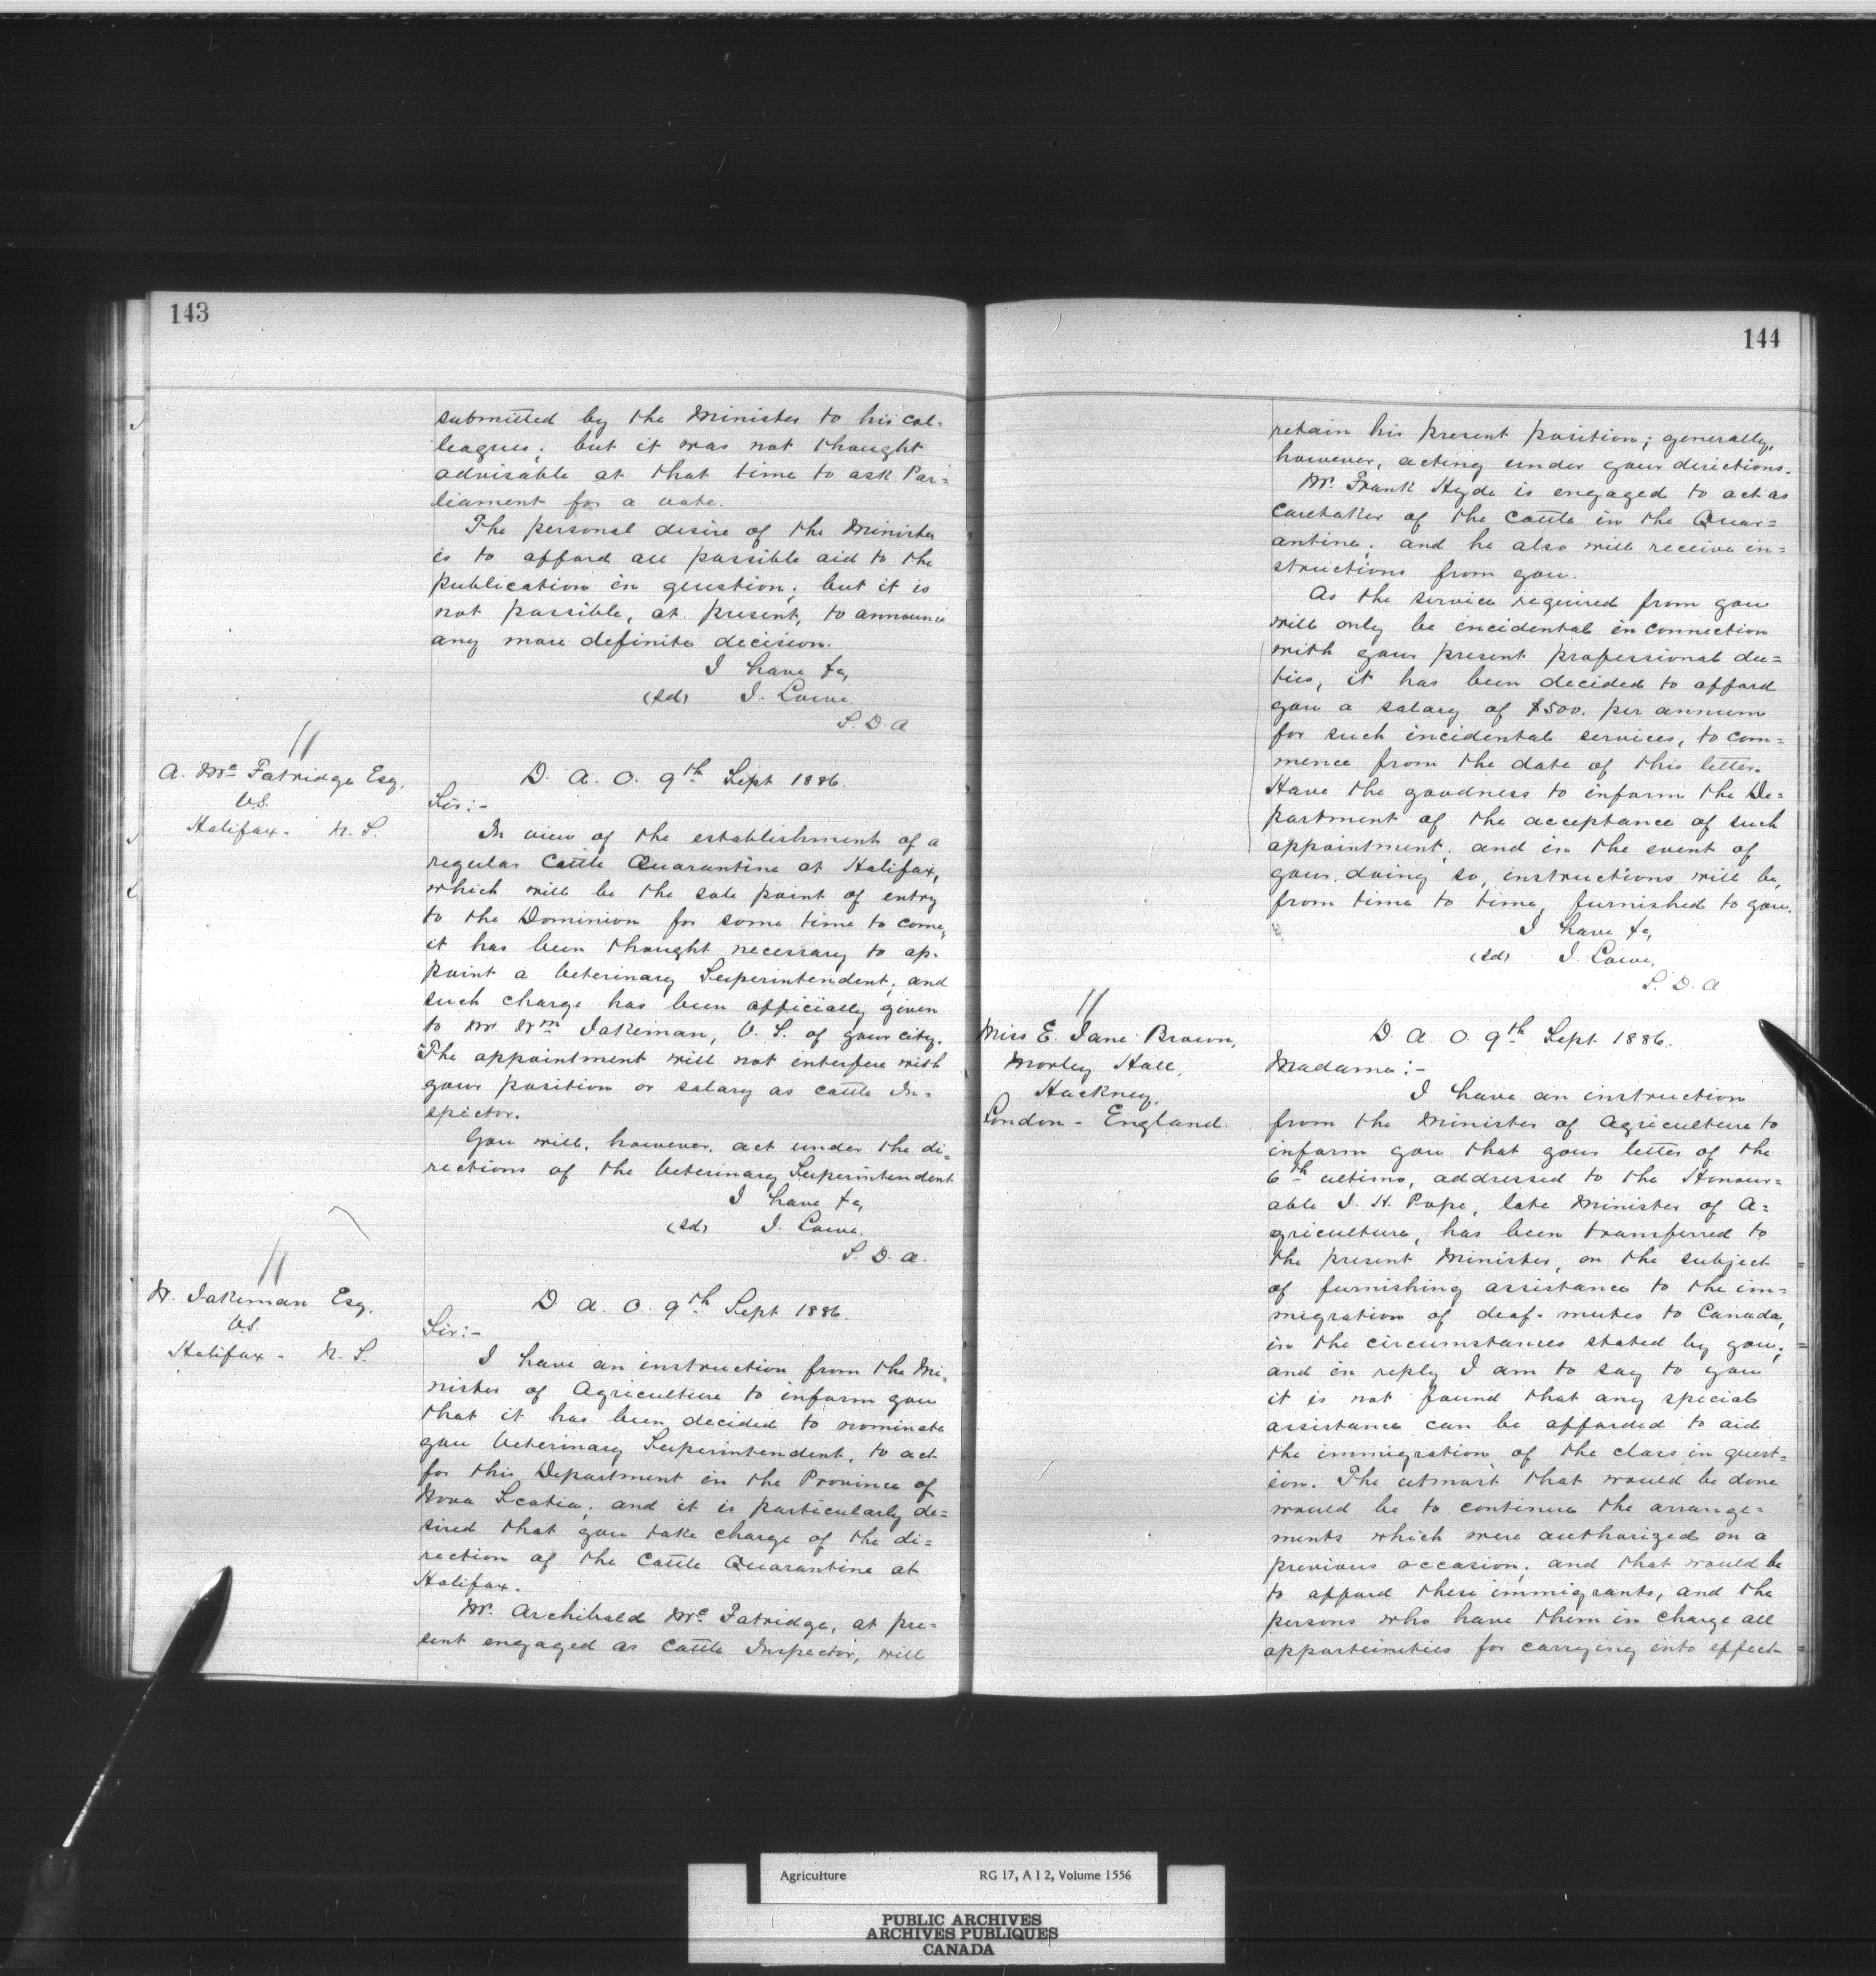 143
submitted by the Minister to his col=
leagues; but it was not thought
advisable at that time to ask Par=
liament for a vote.
The personal desire of the Minister
is to afford all possible aid to the
publication in question; but it is
not possible, at present, to announce
any more definite decision.
I have &c,
(sd) J. Lowe,
S. D. A
A. McFatridge Esq.
V.S.
Halifax - N. S.
D. A. O. 9th Sept 1886.
Sir:-
In view of the establishment of a
regular Cattle Quarantine at Halifax,
which will be the sole point of entry
to the Dominion for some time to come,
it has been thought necessary to ap-
point a Veterinary Superintendent; and
such charge has been officially given
to Mr Wm Jakeman, V. S. of your city.
The appointment will not interfere with
your position or salary as cattle In=
spector.
You will, however, act under the di=
rections of the Veterinary Superintendent
I have &c,
(sd) J. Lowe.
S. D. A.
W. Jakeman Esq.
V.S.
Halifax - N. S.
D. A. O. 9th Sept 1886.
Sir:-
I have an instruction from the Mi-
nister of Agriculture to inform you
that it has been decided to nominate
you Veterinary Superintendent, to act
for this Department in the Province of
Nova Scotia; and it is particularly de=
sired that you take charge of the di=
rection of the Cattle Quarantine at
Halifax.
Mr. Archibald McFatridge, at pre=
sent engaged as Cattle Inspector, will
144
retain his present position; generally,
however, acting under your directions.
Mr. Frank Hyde is engaged to act as
caretaker of the cattle in the Quar=
antine; and he also will receive in=
structions from you.
As the service required from you
will only be incidental in connection
with your present professional du=
ties, it has been decided to afford
you a salary of $500. per annum
for such incidental services, to com=
mence from the date of this letter.
Have the goodness to inform the De=
partment of the acceptance of such
appointment; and in the event of
your doing so, instructions will be,
from time to time, furnished to you.
I have &c,
(sd) J. Lowe,
S. D. A
Miss E. Jane Brown,
Morley Hall,
Hackney,
London - England.
D. A. O. 9th Sept 1886.
Madame:-
I have an instruction
from the Minister of Agriculture to
inform you that your letter of the
6th ultimo, addressed to the Honour=
able J. H. Pope, late Minister of A=
griculture, has been transferred to
the present Minister, on the subject
of furnishing assistance to the im=
migration of deaf-mutes to Canada,
in the circumstances stated by you;
and in reply I am to say to you
it is not found that any special
assistance can be afforded to aid
the immigration of the class in quest=
ion. The utmost that would be done
would be to continue the arrange=
ments which were authorized on a
previous occasion; and that would be
to afford these immigrants, and the
persons who have them in charge all
opportunities for carrying into effect
Agriculture RG 17, A I 2, Volume 1556
PUBLIC ARCHIVES
ARCHIVES PUBLIQUES
CANADA